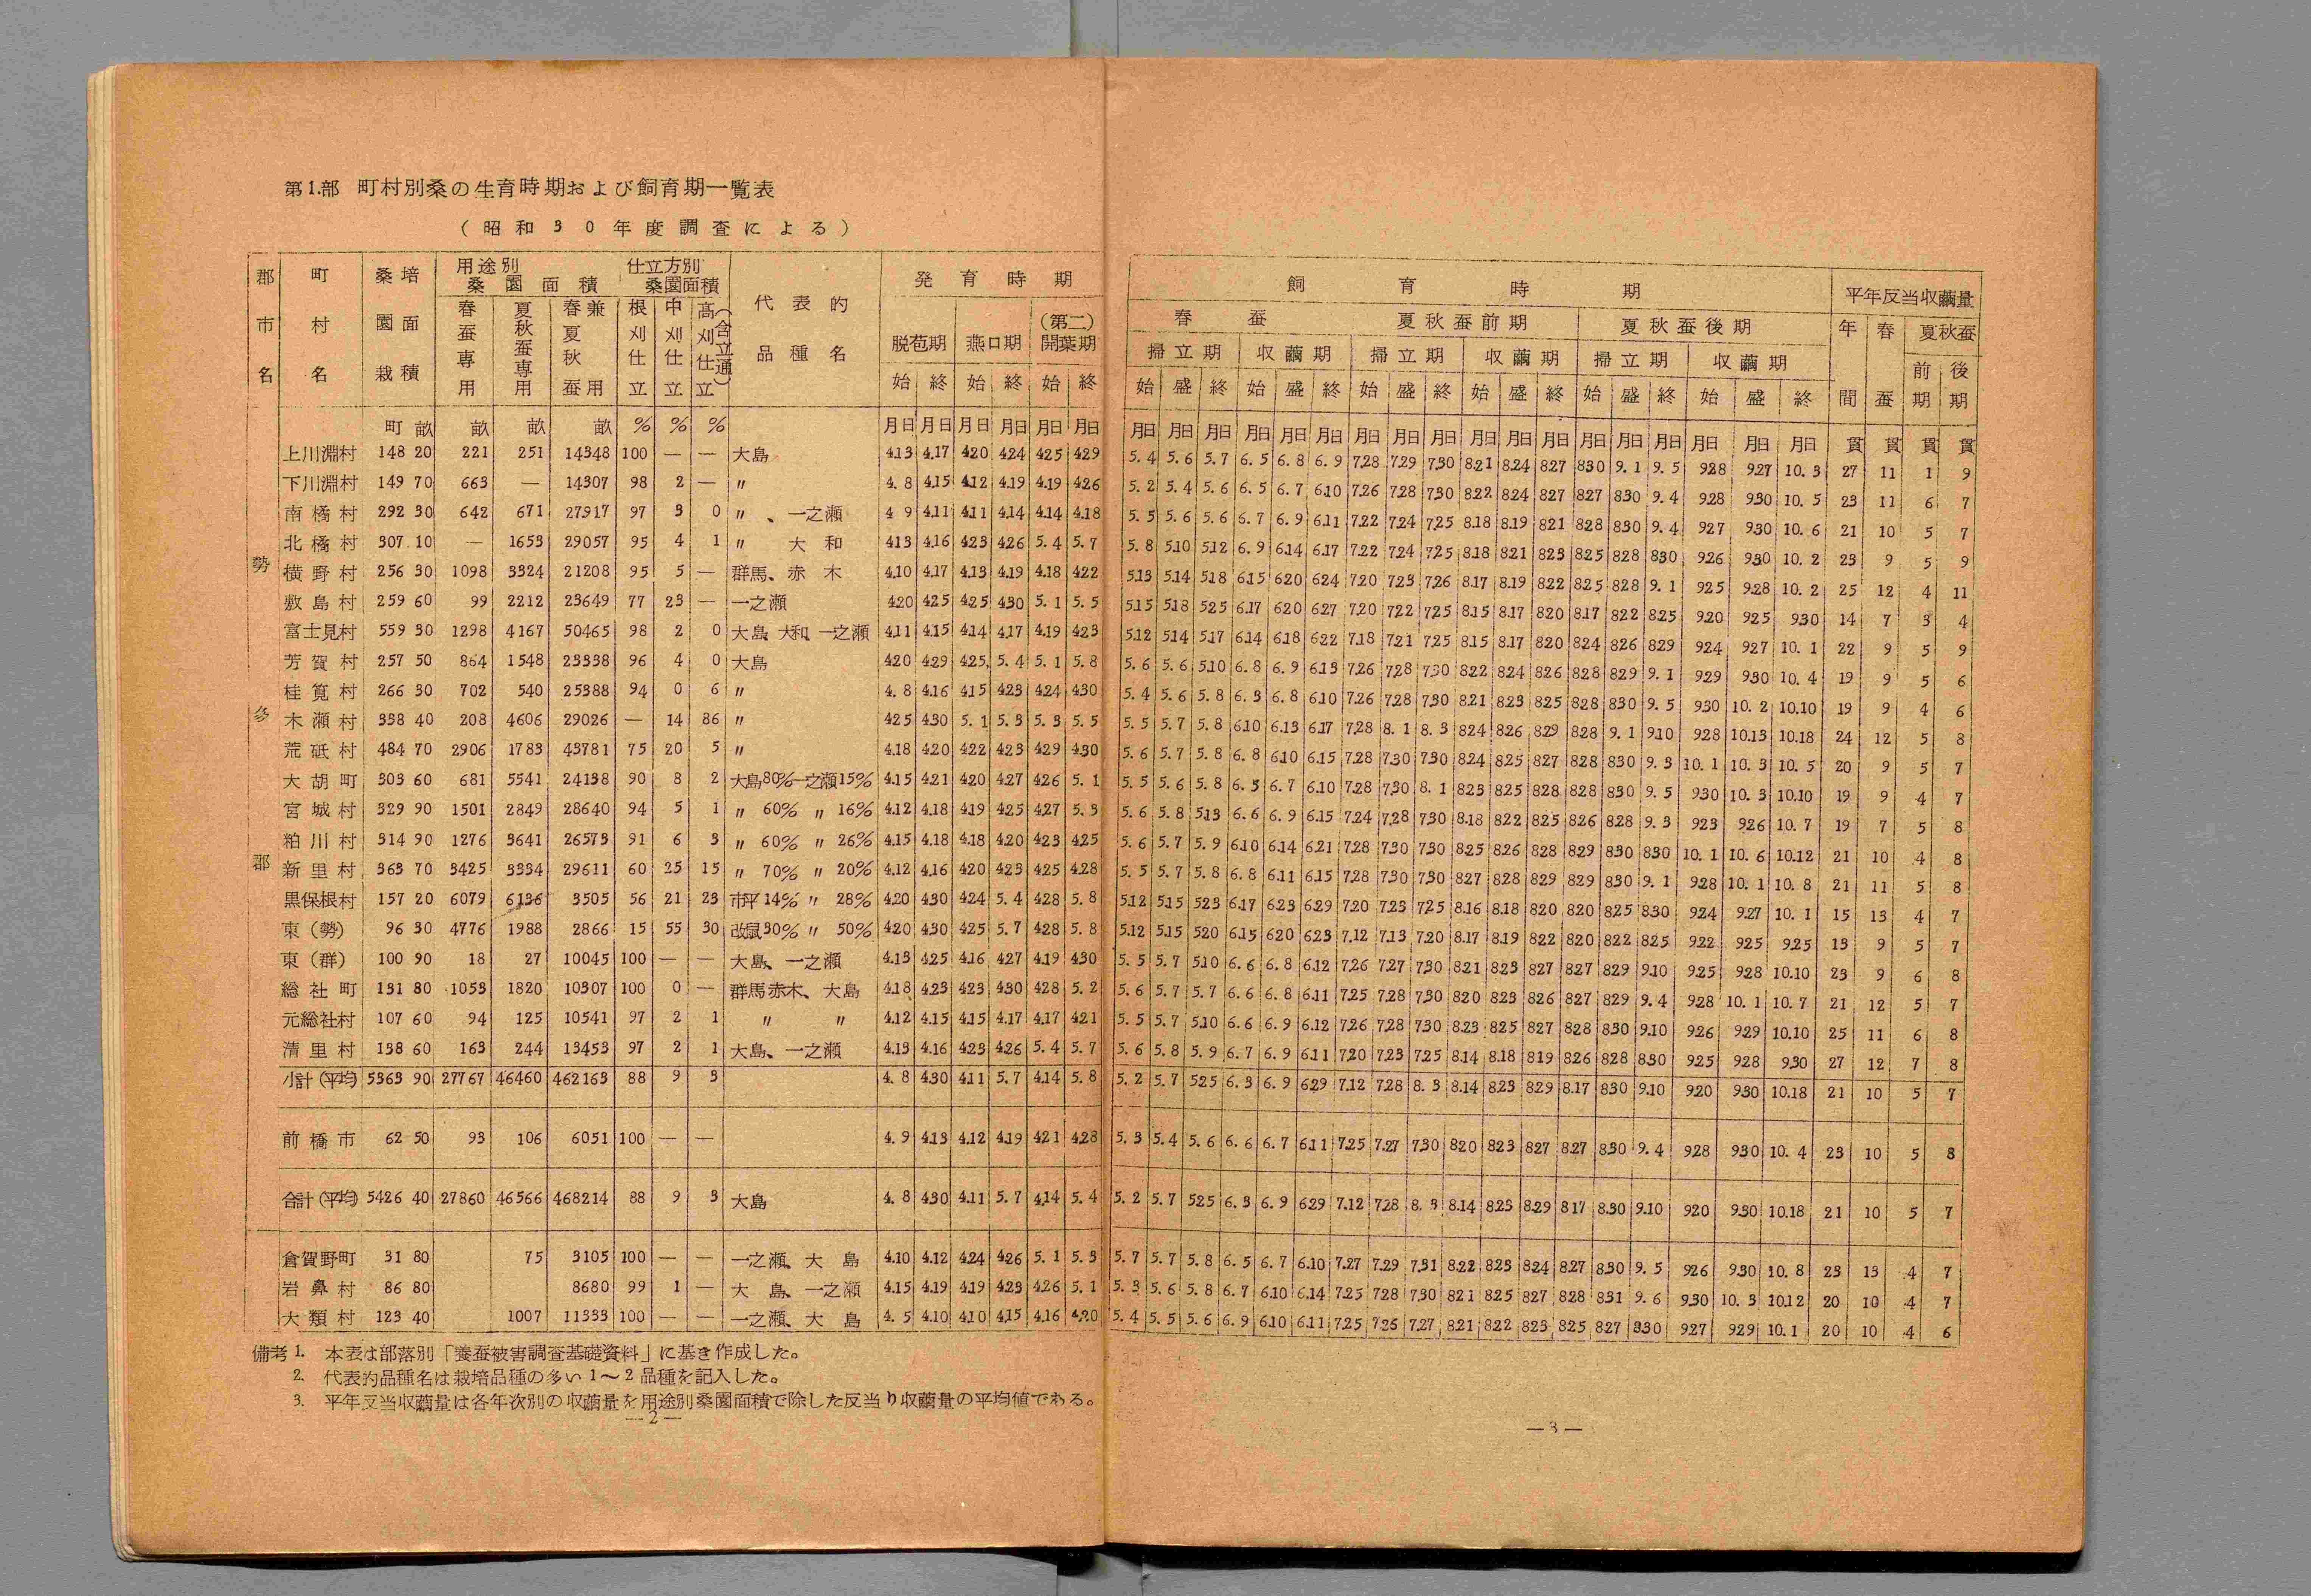 第1.部 町村別桑の生育時期および飼育期一覧表
（昭和30年度調査による）
郡市名 町村名 桑園栽培面積 用途別桑園面積 仕立方別桑園面積 代表的品種名 発育時期
春蚕専用 夏秋蚕専用 春夏秋蚕兼用 根刈仕立 中刈仕立 高刈仕立（含立通） 脱苞期 燕口期 （第二）開葉期
始 終 始 終 始 終
町 畝 畝 畝 畝 % % % 月日 月日 月日 月日 月日 月日
勢多郡
上川淵村 148 20 221 251 14348 100 — — 大島 4.13 4.17 4.20 4.24 4.25 4.29
下川淵村 149 70 663 — 14307 98 2 — 〃 4.8 4.15 4.12 4.19 4.19 4.26
南橘村 292 30 642 671 27917 97 3 0 〃、一之瀬 4 9 4.11 4.11 4.14 4.14 4.18
北橘村 307 10 — 1653 29057 95 4 1 〃 大和 4.13 4.16 4.23 4.26 5.4 5.7
横野村 256 30 1098 3324 21208 95 5 — 群馬、赤木 4.10 4.17 4.13 4.19 4.18 4.22
敷島村 259 60 99 2212 23649 77 23 — 一之瀬 4.20 4.25 4.25 4.30 5.1 5.5
富士見村 559 30 1298 4167 50465 98 2 0 大島、大和、一之瀬 4.11 4.15 4.14 4.17 4.19 4.23
芳賀村 257 50 864 1548 23338 96 4 0 大島 4.20 4.29 4.25 5.4 5.1 5.8
桂萱村 266 30 702 540 25388 94 0 6 〃 4.8 4.16 4.15 4.23 4.24 4.30
木瀬村 338 40 208 4606 29026 — 14 86 〃 4.25 4.30 5.1 5.3 5.3 5.5
荒砥村 484 70 2906 1783 43781 75 20 5 〃 4.18 4.20 4.22 4.23 4.29 4.30
大胡町 303 60 681 5541 24138 90 8 2 大島80%一之瀬15% 4.15 4.21 4.20 4.27 4.26 5.1
宮城村 329 90 1501 2849 28640 94 5 1 〃 60% 〃 16% 4.12 4.18 4.19 4.25 4.27 5.3
粕川村 314 90 1276 3641 26573 91 6 3 〃 60% 〃 26% 4.15 4.18 4.18 4.20 4.23 4.25
新里村 363 70 3425 3334 29611 60 25 15 〃 70% 〃 20% 4.12 4.16 4.20 4.23 4.25 4.28
黒保根村 157 20 6079 6136 3505 56 21 23 市平14% 〃 28% 4.20 4.30 4.24 5.4 4.28 5.8
東（勢） 96 30 4776 1988 2866 15 55 30 改鼠30% 〃 50% 4.20 4.30 4.25 5.7 4.28 5.8
東（群） 100 90 18 27 10045 100 — — 大島、一之瀬 4.13 4.25 4.16 4.27 4.19 4.30
総社町 131 80 1053 1820 10307 100 0 — 群馬赤木、大島 4.18 4.23 4.23 4.30 4.28 5.2
元総社村 107 60 94 125 10541 97 2 1 〃 〃 4.12 4.15 4.15 4.17 4.17 4.21
清里村 138 60 163 244 13453 97 2 1 大島、一之瀬 4.13 4.16 4.23 4.26 5.4 5.7
小計（平均） 5363 90 27767 46460 462163 88 9 3 4.8 4.30 4.11 5.7 4.14 5.8
前橋市 62 50 93 106 6051 100 — — 4.9 4.13 4.12 4.19 4.21 4.28
合計（平均） 5426 40 27860 46566 468214 88 9 3 大島 4.8 4.30 4.11 5.7 4.14 5.4
倉賀野町 31 80 75 3105 100 — — 一之瀬、大島 4.10 4.12 4.24 4.26 5.1 5.3
岩鼻村 86 80 8680 99 1 — 大島、一之瀬 4.15 4.19 4.19 4.23 4.26 5.1
大類村 123 40 1007 11333 100 — — 一之瀬、大島 4.5 4.10 4.10 4.15 4.16 4.20
備考 1. 本表は部落別「養蚕被害調査基礎資料」に基き作成した。
2. 代表的品種名は栽培品種の多い1〜2品種を記入した。
3. 平年反当収繭量は各年次別の収繭量を用途別桑園面積で除した反当り収繭量の平均値である。
—2—
飼育時期 平年反当収繭量
春蚕 夏秋蚕前期 夏秋蚕後期 年間 春蚕 夏秋蚕
掃立期 収繭期 掃立期 収繭期 掃立期 収繭期 前期 後期
始 盛 終 始 盛 終 始 盛 終 始 盛 終 始 盛 終 始 盛 終
月日 月日 月日 月日 月日 月日 月日 月日 月日 月日 月日 月日 月日 月日 月日 月日 月日 月日 貫 貫 貫 貫
5.4 5.6 5.7 6.5 6.8 6.9 7.28 7.29 7.30 8.21 8.24 8.27 8.30 9.1 9.5 9.28 9.27 10.3 27 11 1 9
5.2 5.4 5.6 6.5 6.7 6.10 7.26 7.28 7.30 8.22 8.24 8.27 8.27 8.30 9.4 9.28 9.30 10.5 23 11 6 7
5.5 5.6 5.6 6.7 6.9 6.11 7.22 7.24 7.25 8.18 8.19 8.21 8.28 8.30 9.4 9.27 9.30 10.6 21 10 5 7
5.8 5.10 5.12 6.9 6.14 6.17 7.22 7.24 7.25 8.18 8.21 8.23 8.25 8.28 8.30 9.26 9.30 10.2 23 9 5 9
5.13 5.14 5.18 6.15 6.20 6.24 7.20 7.23 7.26 8.17 8.19 8.22 8.25 8.28 9.1 9.25 9.28 10.2 25 12 4 11
5.15 5.18 5.25 6.17 6.20 6.27 7.20 7.22 7.25 8.15 8.17 8.20 8.17 8.22 8.25 9.20 9.25 9.30 14 7 3 4
5.12 5.14 5.17 6.14 6.18 6.22 7.18 7.21 7.25 8.15 8.17 8.20 8.24 8.26 8.29 9.24 9.27 10.1 22 9 5 9
5.6 5.6 5.10 6.8 6.9 6.13 7.26 7.28 7.30 8.22 8.24 8.26 8.28 8.29 9.1 9.29 9.30 10.4 19 9 5 6
5.4 5.6 5.8 6.3 6.8 6.10 7.26 7.28 7.30 8.21 8.23 8.25 8.28 8.30 9.5 9.30 10.2 10.10 19 9 4 6
5.5 5.7 5.8 6.10 6.13 6.17 7.28 8.1 8.3 8.24 8.26 8.29 8.28 9.1 9.10 9.28 10.13 10.18 24 12 5 8
5.6 5.7 5.8 6.8 6.10 6.15 7.28 7.30 7.30 8.24 8.25 8.27 8.28 8.30 9.3 10.1 10.3 10.5 20 9 5 7
5.5 5.6 5.8 6.5 6.7 6.10 7.28 7.30 8.1 8.23 8.25 8.28 8.28 8.30 9.5 9.30 10.3 10.10 19 9 4 7
5.6 5.8 5.13 6.6 6.9 6.15 7.24 7.28 7.30 8.18 8.22 8.25 8.26 8.28 9.3 9.23 9.26 10.7 19 7 5 8
5.6 5.7 5.9 6.10 6.14 6.21 7.28 7.30 7.30 8.25 8.26 8.28 8.29 8.30 8.30 10.1 10.6 10.12 21 10 4 8
5.5 5.7 5.8 6.8 6.11 6.15 7.28 7.30 7.30 8.27 8.28 8.29 8.29 8.30 9.1 9.28 10.1 10.8 21 11 5 8
5.12 5.15 5.23 6.17 6.23 6.29 7.20 7.23 7.25 8.16 8.18 8.20 8.20 8.25 8.30 9.24 9.27 10.1 15 13 4 7
5.12 5.15 5.20 6.15 6.20 6.23 7.12 7.13 7.20 8.17 8.19 8.22 8.20 8.22 8.25 9.22 9.25 9.25 13 9 5 7
5.5 5.7 5.10 6.6 6.8 6.12 7.26 7.27 7.30 8.21 8.23 8.27 8.27 8.29 9.10 9.25 9.28 10.10 23 9 6 8
5.6 5.7 5.7 6.6 6.8 6.11 7.25 7.28 7.30 8.20 8.23 8.26 8.27 8.29 9.4 9.28 10.1 10.7 21 12 5 7
5.5 5.7 5.10 6.6 6.9 6.12 7.26 7.28 7.30 8.23 8.25 8.27 8.28 8.30 9.10 9.26 9.29 10.10 25 11 6 8
5.6 5.8 5.9 6.7 6.9 6.11 7.20 7.23 7.25 8.14 8.18 8.19 8.26 8.28 8.30 9.25 9.28 9.30 27 12 7 8
5.2 5.7 5.25 6.3 6.9 6.29 7.12 7.28 8.3 8.14 8.23 8.29 8.17 8.30 9.10 9.20 9.30 10.18 21 10 5 7
5.3 5.4 5.6 6.6 6.7 6.11 7.25 7.27 7.30 8.20 8.23 8.27 8.27 8.30 9.4 9.28 9.30 10.4 23 10 5 8
5.2 5.7 5.25 6.3 6.9 6.29 7.12 7.28 8.3 8.14 8.23 8.29 8.17 8.30 9.10 9.20 9.30 10.18 21 10 5 7
5.7 5.7 5.8 6.5 6.7 6.10 7.27 7.29 7.31 8.22 8.23 8.24 8.27 8.30 9.5 9.26 9.30 10.8 23 13 4 7
5.3 5.6 5.8 6.7 6.10 6.14 7.25 7.28 7.30 8.21 8.25 8.27 8.28 8.31 9.6 9.30 10.3 10.12 20 10 4 7
5.4 5.5 5.6 6.9 6.10 6.11 7.25 7.26 7.27 8.21 8.22 8.23 8.25 8.27 8.30 9.27 9.29 10.1 20 10 4 6
—3—